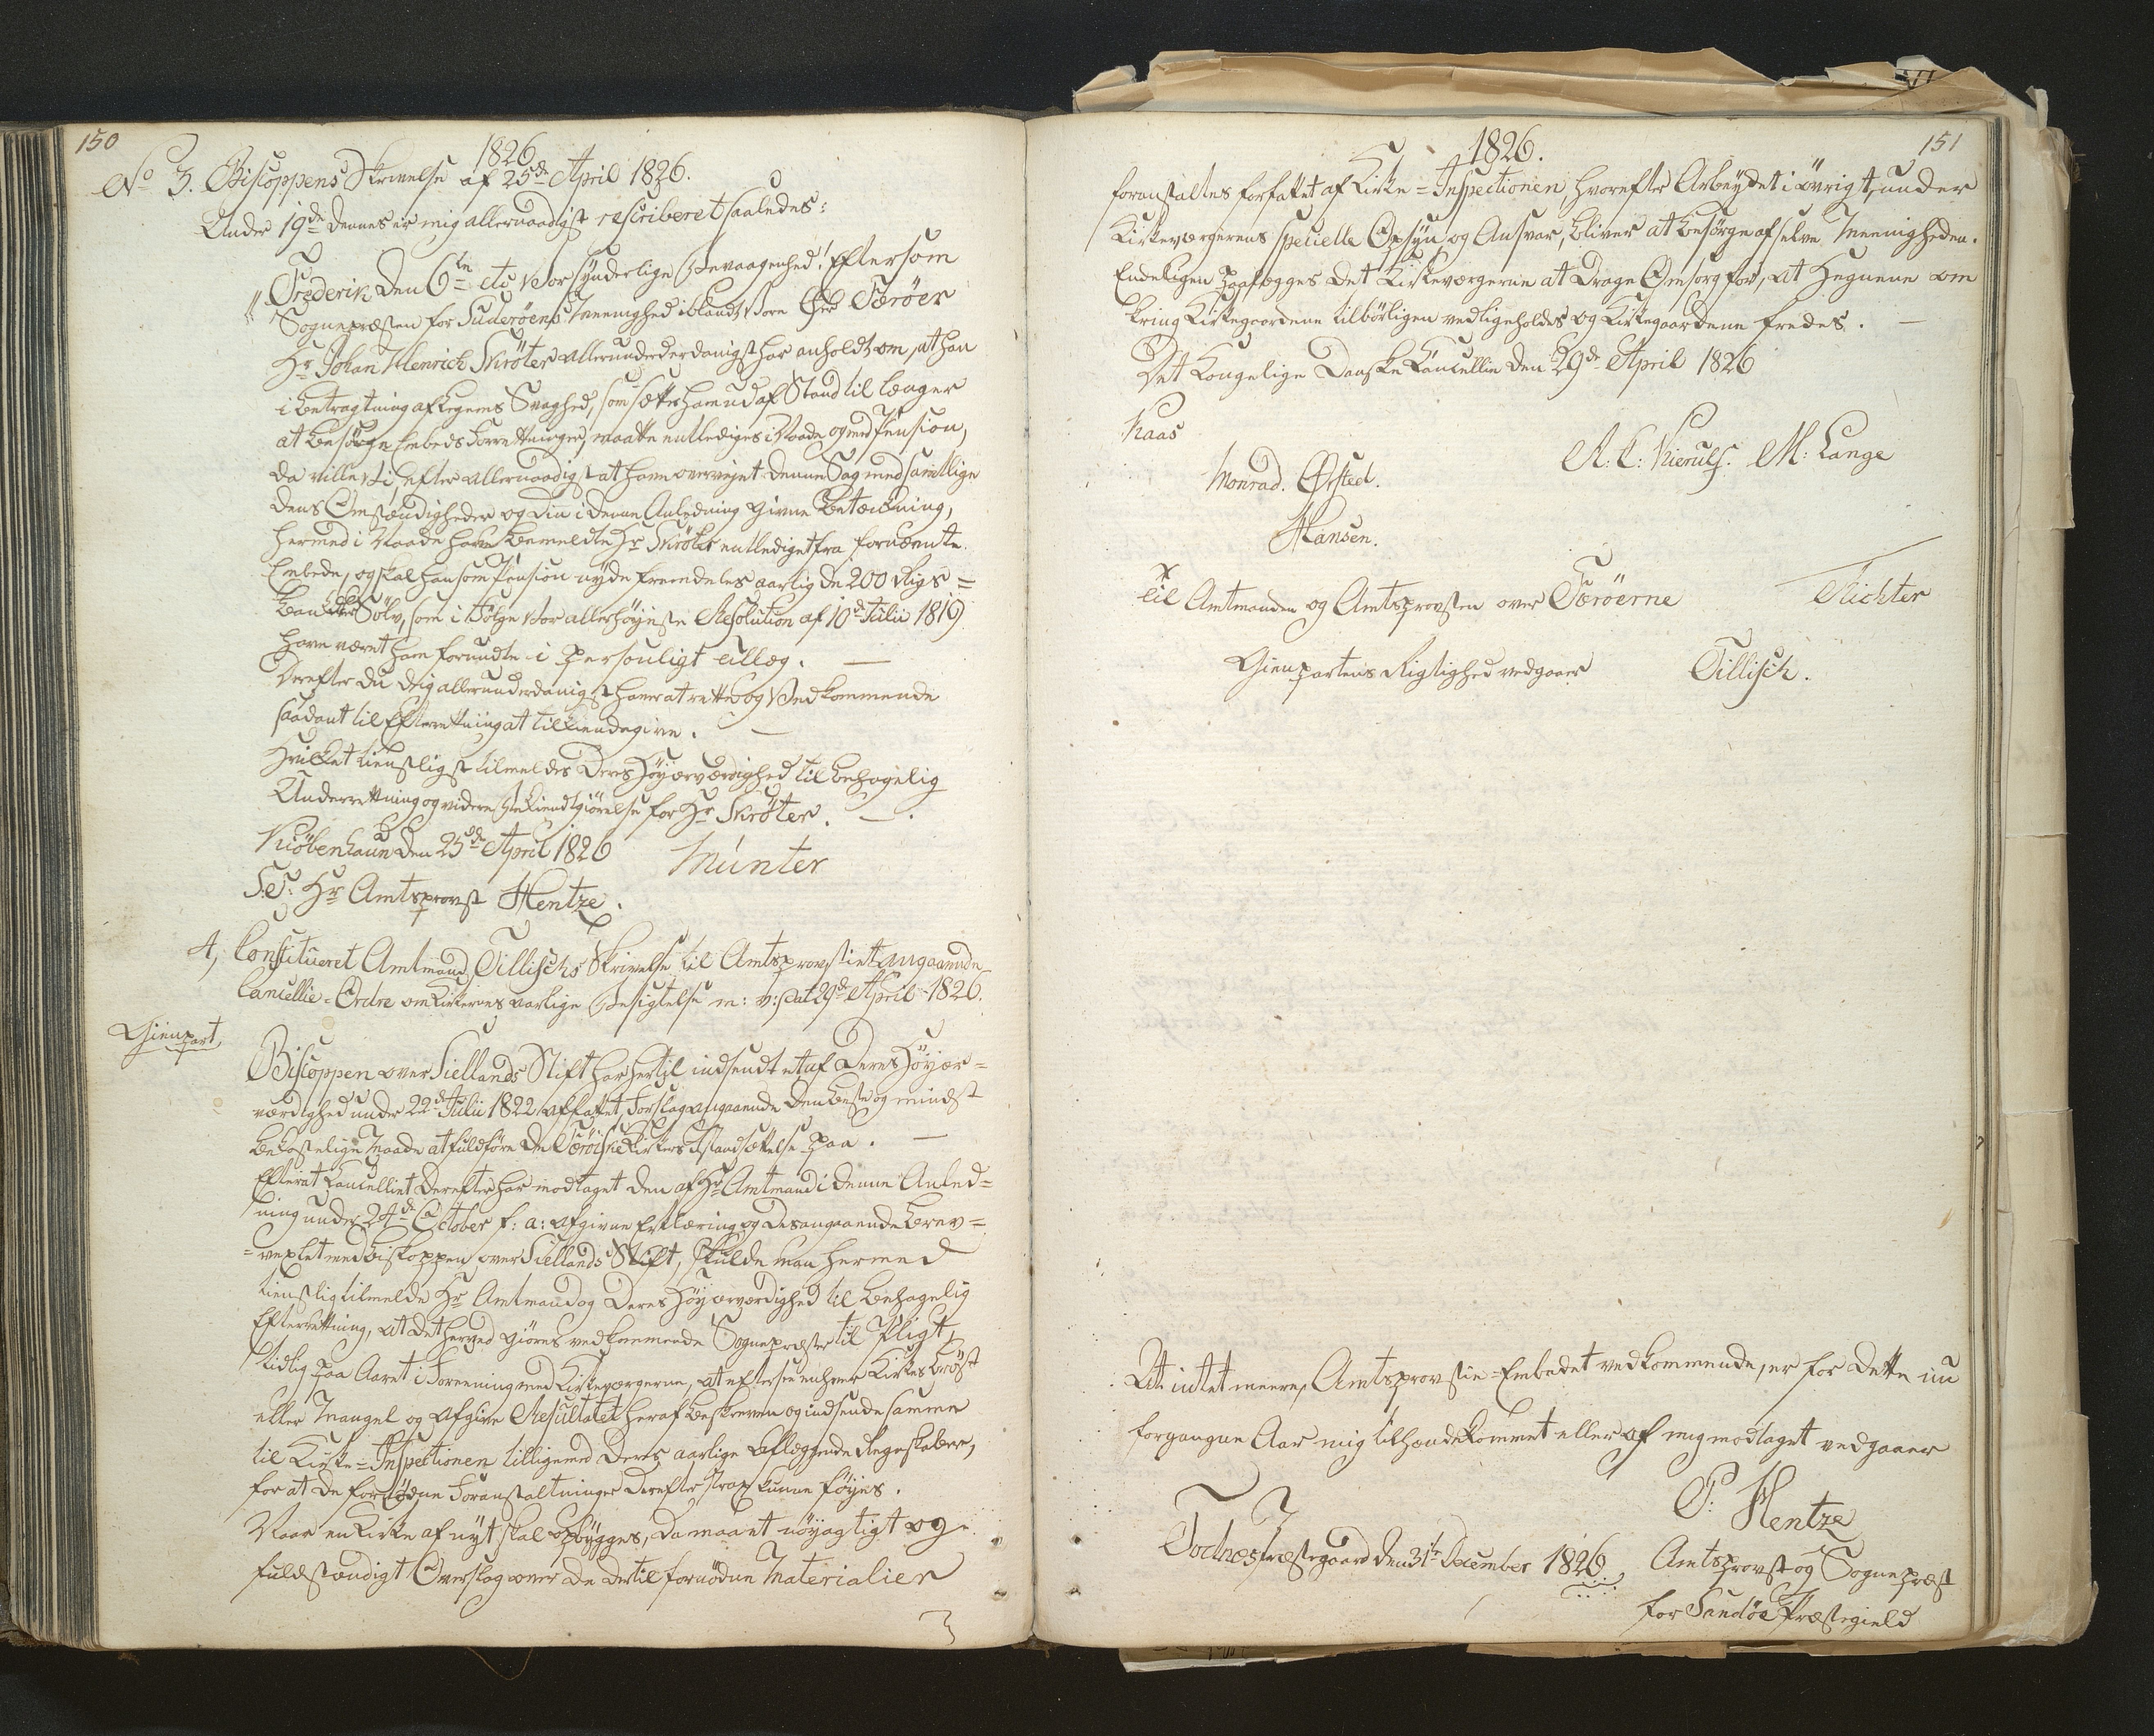 150
1826
No 3. Biskoppens Skrivelse af 25de April 1826.
Under 19de dennes er mig allernaadigst rescriberet saaledes:
"Frederik den 6te etc Vor synderlige Bevaagenhed! Eftersom
Sognepræsten for Suderöens Meenighed iblandt Vore Öer Færöer
Hr Johan Henrich Schröter allerunderdanigst har anholdt om, at han
i Betragtning af Legems Svaghed, som sætter ham ud af Stand til længer
at besörge Embeds Forretninger, maatte entlediges i Naade og med Pension,
da ville Vi, efter allernaadigst at have overvejet denne Sag med samtlige
dens Omstændigheder og din i denne Anledning givne Betænkning,
hermed i Naade have bemeldte Hr Schröter entlediget fra fornævnte
Embede, og skal han som Pension nyde fremdeles aarlig de 200 Rigs=
bankdlr Sölv, som i Fölge Vor allerhöjeste Resolution af 10de Julii 1819
have været ham forundte i personligt Tillæg. —
Derefter du dig allerunderdanigst haver at rette og Vedkommende
saadant til Efterretning at tilkiendegive. —
Hvilket tienstligst tilmeldes Deres Höjærværdighed til behagelig
Underretning og videre Bekiendtgiörelse for Hr Schröter. —.
Kiöbenhavn den 25de April 1826 Münter
S.T. Hr Amtsprovst Hentze.
4, Constitueret Amtmand Tillischs Skrivelse til Amtsprovstiet angaaende
Cancellie-Ordre om Kirkernes aarlige Besigtelse m: v: dat 29de April 1826.
Gienpart,
Biskoppen over Siellands Stift har hertil indsendt et af Deres Höjær=
værdighed under 22de Julii 1822 affattet Forslag angaaende den beste og mindst
bekostelige Maade at fuldföre de Færöiske Kirkers Istandsættelse paa. —
Efterat Cancelliet derefter har modtaget den af Hr Amtmand i denne Anled=
ning under 24de October f: a: afgivne Erklæring og desangaaende Brev=
=vexlet med Biskoppen over Siellands Stift, skulde man hermed
tienstlig tilmelde Hr Amtmand og Deres Höjærværdighed til behagelig
Efterretning, at det herved giöres vedkommende Sognepræster til Pligt,
tidlig paa Aaret i Foreening med Kirkeværgerne, at eftersee enhver Kirkes Bröst
eller Mangel og afgive Resultatet heraf beskreven og indsende samme
til Kirke=Inspectionen tilligemed deres aarlige aflæggende Regnskaber,
for at de fornödne Foranstaltninger derefter strax kunne föjes.
Naar en Kirke af nyt skal opbygges, da maa et nöjagtigt og
fuldstændigt Overslag over de dertil fornödne Materialier
1826.
151
foranstaltes forfattet af Kirke=Inspectionen, hvorefter Arbeydet i övrigt, under
Kirkeværgerens specielle Opsyn og Ansvar, bliver at besörge af selve Meenigheden.
Endeligen paalægges det Kirkeværgerne at drage Omsorg for, at Hegnene om
kring Kirkegaardene tilbörligen vedligeholdes og Kirkegaardene fredes. —
Det Kongelige Danske Cancellie den 29de April 1826
Kaas
A: C: Kierulf. M: Lange
Monrad. Ørsted.
Hansen.
Til Amtmanden og Amtsprovsten over Færöerne Richter
Gienpartens Rigtighed vedgaaer Tillisch.
At intet meere, Amtsprovstie=Embedet vedkommende, er for dette nu
forgangne Aar mig tilhændekommet eller af mig modtaget vedgaaer
P: Hentze
Todnes Præstegaard den 31te December 1826. Amtsprovst og Sognepræst
for Sandöe Præstegield